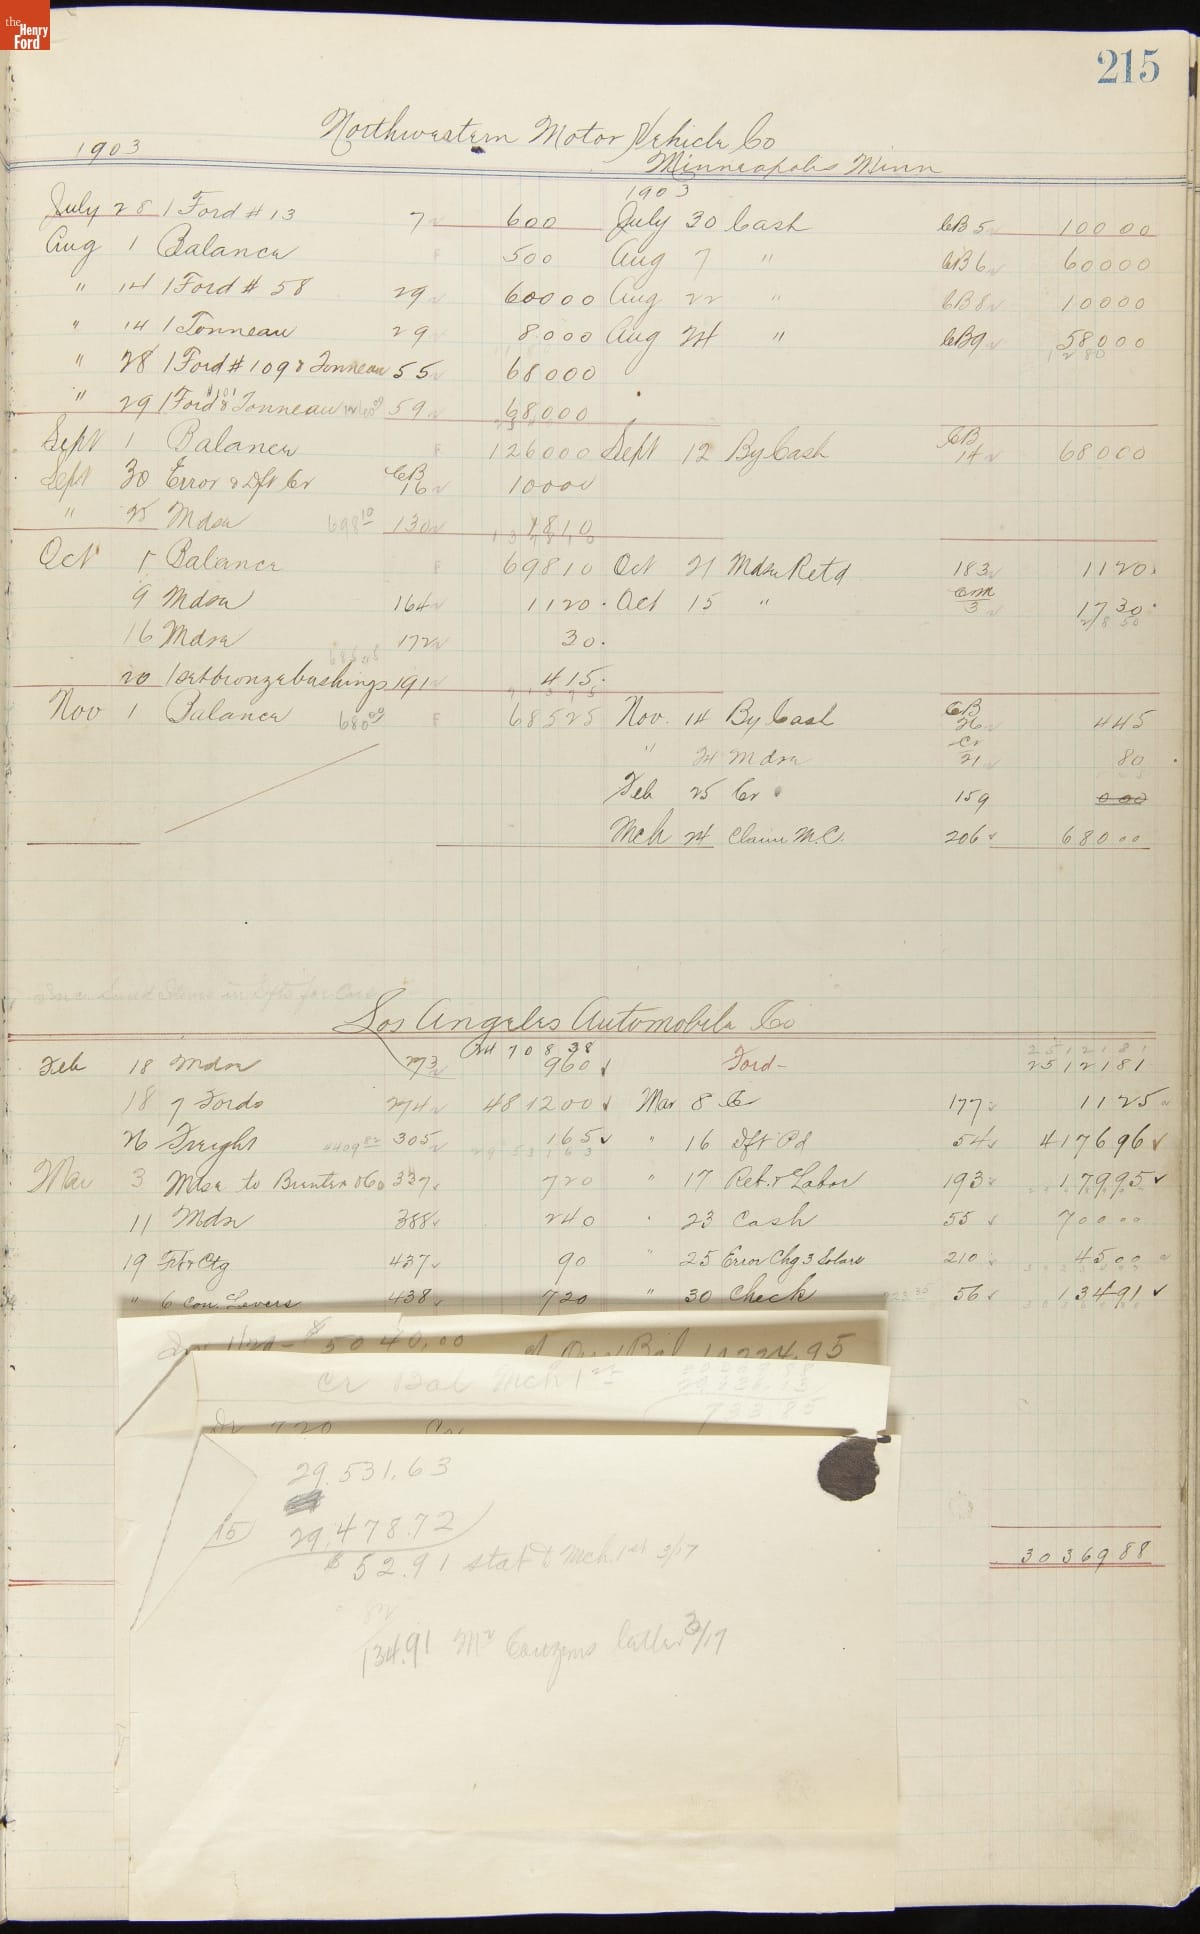 the Henry Ford
215
Northwestern Motor Vehicle Co
1903 Minneapolis Minn
1903
July 28 1 Ford # 13 7 600 July 30 Cash CB 5 100 00
Aug 1 Balance F 500 Aug 7 " CB 6 600 00
" 14 1 Ford # 58 29 600 00 Aug 22 " CB 8 100 00
" 14 1 Tonneau 29 80 00 Aug 24 " CB 9 580 00
1280
" 28 1 Ford # 109 & Tonneau 55 680 00
" 29 1 Ford & Tonneau 59 680 00
Sept 1 Balance F 1260 00 Sept 12 By Cash CB 14 680 00
Sept 30 Error & Dft Cr CB 16 100 00
" 25 Mdse 698 10 130 18 10
Oct 1 Balance F 698 10 Oct 21 Mdse Retd 183 11 20
9 Mdse 164 11 20 Oct 15 " Crm 3 17 30
16 Mdse 172 30
20 1 set bronze bushings 191 4 15
Nov 1 Balance 680 00 F 685 25 Nov. 14 By Cash CB 26 4 45
" 24 Mdse Cr 21 80
Feb 25 Cr 159 0 00
Mch 24 Claim M.C. 206 680 00
Los Angeles Automobile Co
708 38 25121 81
Feb 18 Mdse 273 9 60 Ford - 25121 81
18 7 Fords 274 4812 00 Mar 8 Cr 177 11 25
26 Freight 4409 82 305 1 65 " 16 Dft Pd 54 4176 96
Mar 3 Mdse to 337 7 20 " 17 Ret. & Labor 193 179 95
11 Mdse 388 2 40 " 23 Cash 55 700 00
19 Frt & Ctg 437 90 " 25 Error Chg 3 210 45 00
" 6 Con. Levers 438 7 20 " 30 Check 56 134 91
$5040.00 Bal 224.95
Cr Bal Mch 1st
733.85
Dr 720 Cr
29,531.63
15
29,478.72
$52.91 stat Mch. 1st 3/17
134.91 Mr Couzens letter 3/17
30369 88